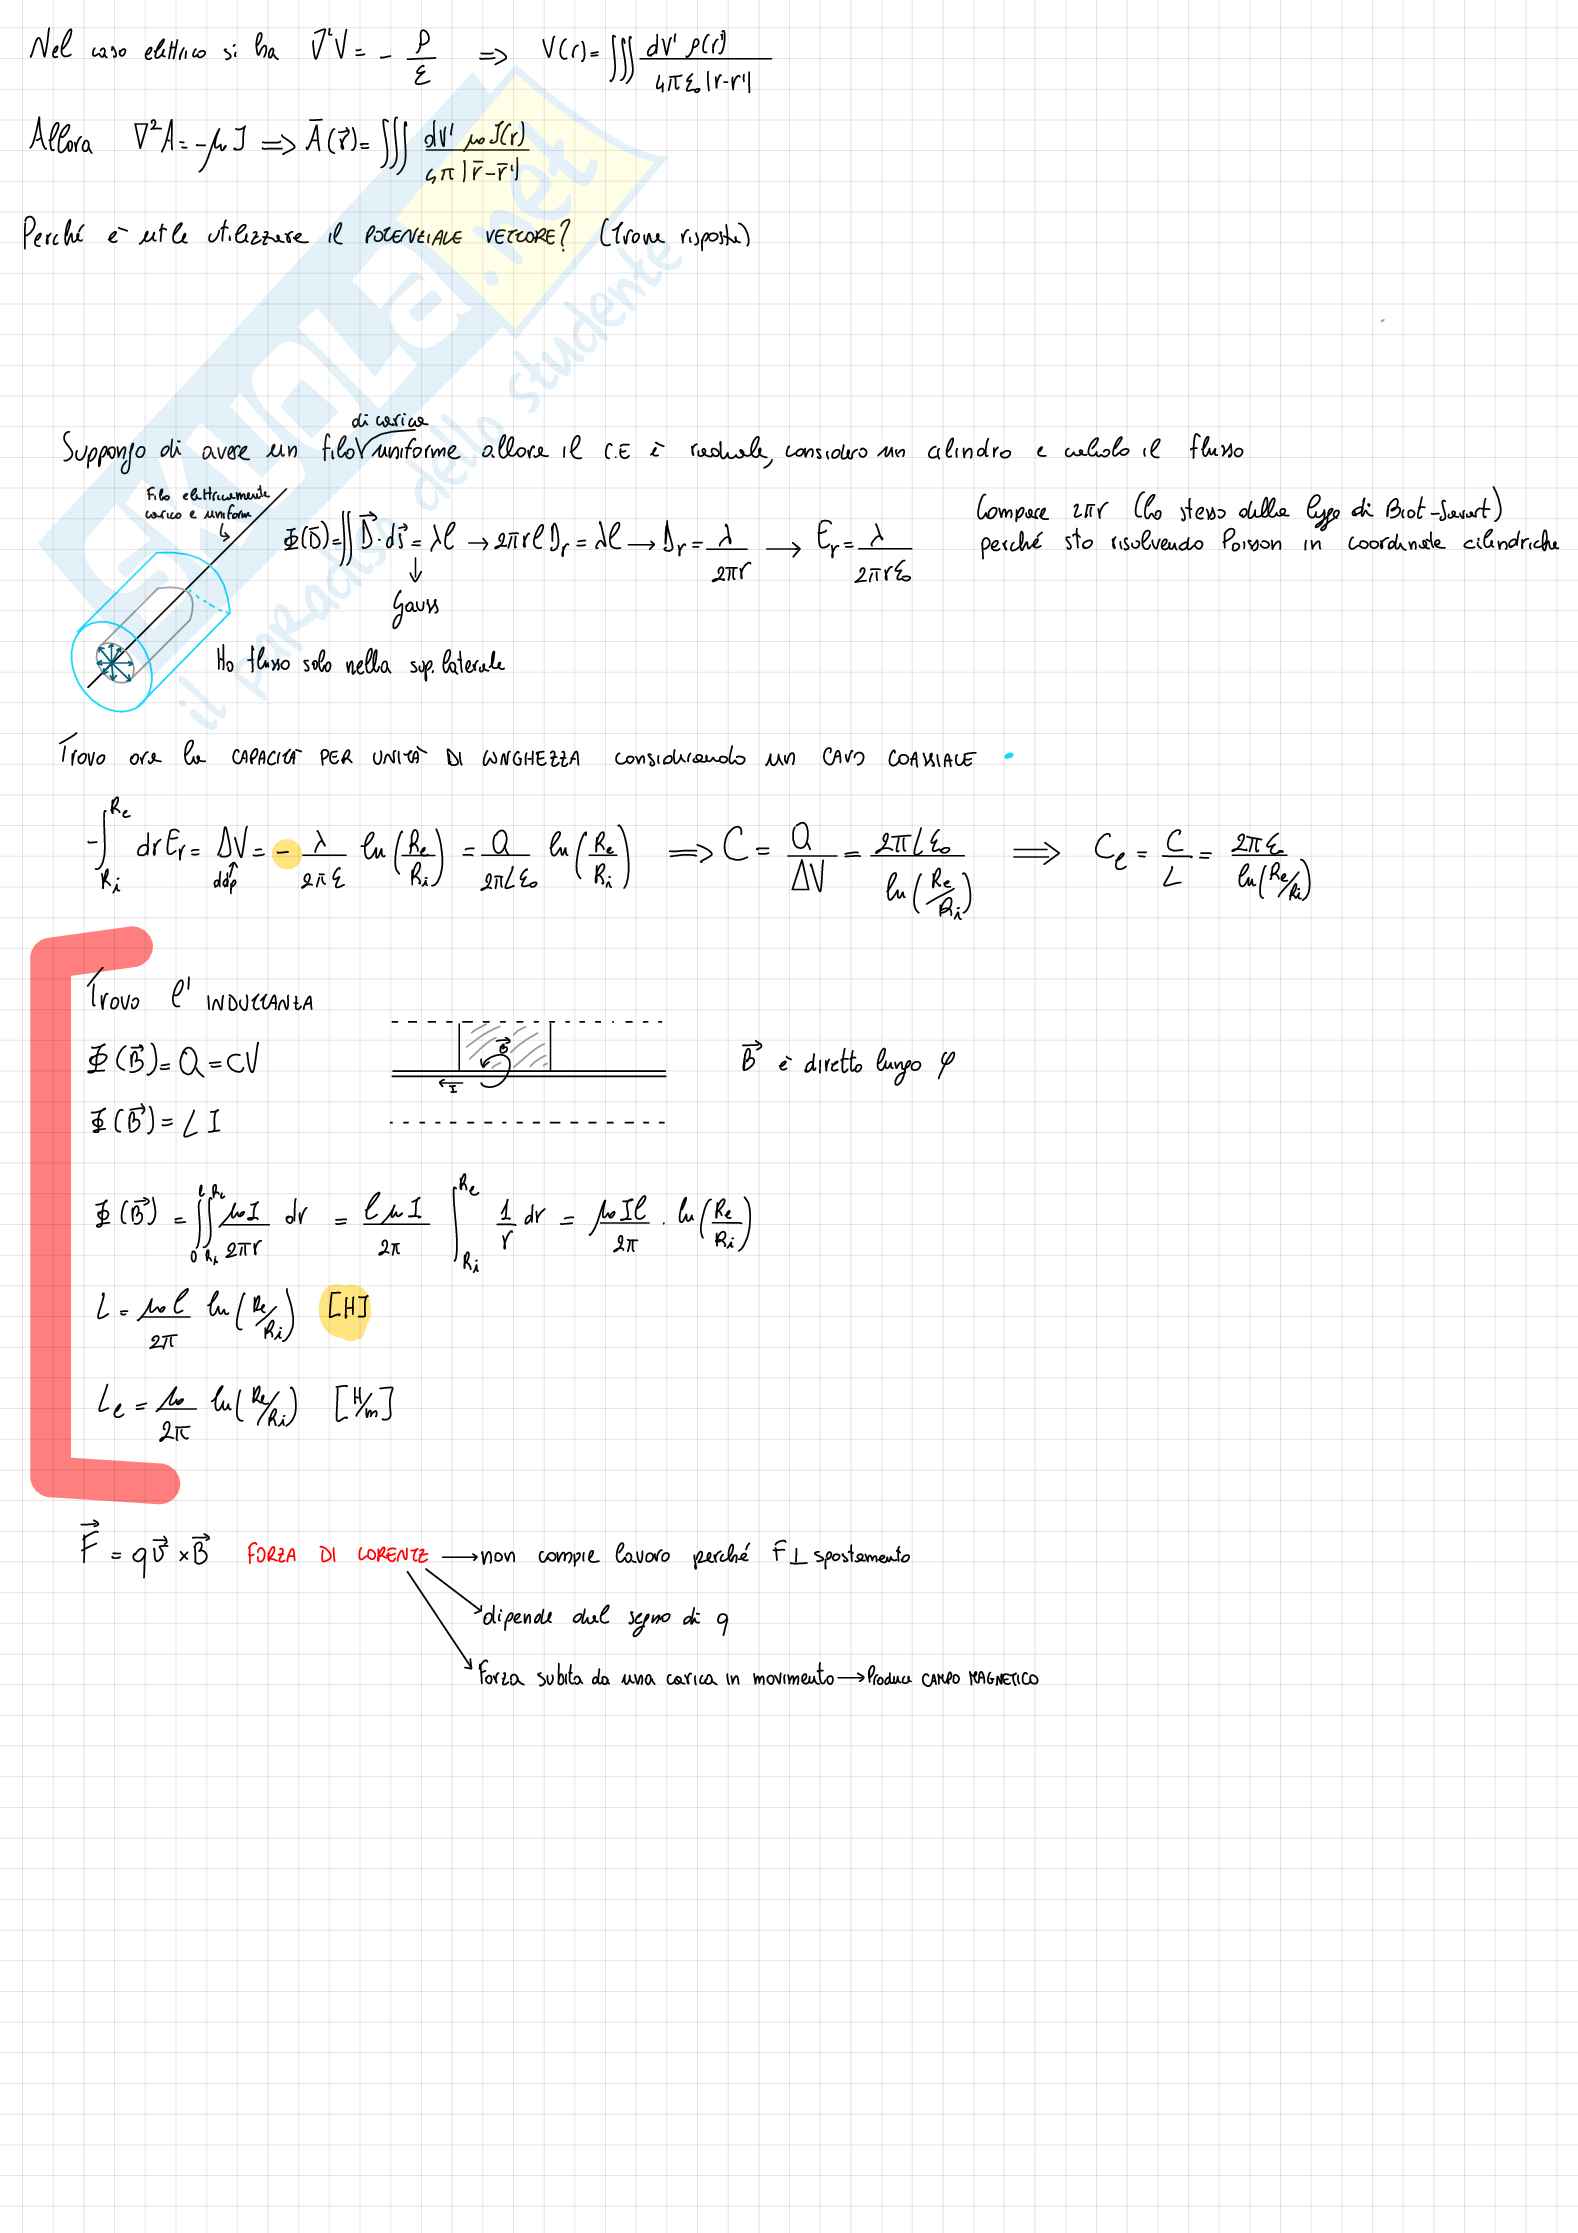 Nel caso elettrico si ha ∇²V = - ρ/ε ⇒ V(r) = ∭ dV' ρ(r') / 4πε₀|r-r'|
Allora ∇²A = -μJ ⇒ A̅(r⃗) = ∭ dV' μ₀J(r) / 4π|r̅-r̅'|
Perché è utile utilizzare il POTENZIALE VETTORE? (Trova risposta)
di carica
Suppongo di avere un filo uniforme allora il C.E è radiale, considero un cilindro e calcolo il flusso
Filo elettricamente
carico e uniforme
Φ(D̅) = ∬ D⃗·ds⃗ = λl → 2πrl Dr = λl → Dr = λ/2πr → Er = λ/2πrε₀
Gauss
Compare 2πr (lo stesso della legge di Biot-Savart)
perché sto risolvendo Poisson in coordinate cilindriche
Ho flusso solo nella sup. laterale
Trovo ora la CAPACITÀ PER UNITÀ DI LUNGHEZZA considerando un CAVO COASSIALE
-∫_Ri^Re dr Er = ΔV = - λ/2πε ln(Re/Ri) = Q/2πLε₀ ln(Re/Ri) ⇒ C = Q/ΔV = 2πLε₀/ln(Re/Ri) ⇒ Cl = C/L = 2πε₀/ln(Re/Ri)
ddp
Trovo l' INDUTTANZA
Φ(B⃗) = Q = CV
B⃗
I
B⃗ è diretto lungo φ
Φ(B⃗) = L I
Φ(B⃗) = ∫_0^l ∫_Ri^Re μ₀I/2πr dr = lμI/2π ∫_Ri^Re 1/r dr = μ₀Il/2π · ln(Re/Ri)
L = μ₀l/2π ln(Re/Ri) [H]
Ll = μ₀/2π ln(Re/Ri) [H/m]
F⃗ = qv⃗ × B⃗ FORZA DI LORENTZ → non compie lavoro perché F ⊥ spostamento
dipende dal segno di q
Forza subita da una carica in movimento → Produce CAMPO MAGNETICO
SKUOLA.net
il paradiso dello studente